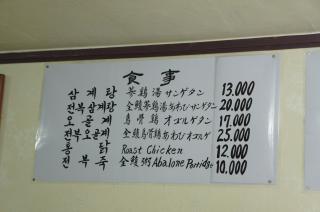 食事
삼계탕 蔘鶏湯 サンゲタン 13.000
전복삼계탕 全鰒蔘鶏湯あわびサンゲタン 20.000
오골계 烏骨鶏 オゴルゲタン 17.000
전복오골계 全鰒烏骨鶏あわびオゴルゲ 25.000
통닭 Roast Chicken 12.000
전복죽 全鰒粥 Abalone Porridge 10.000